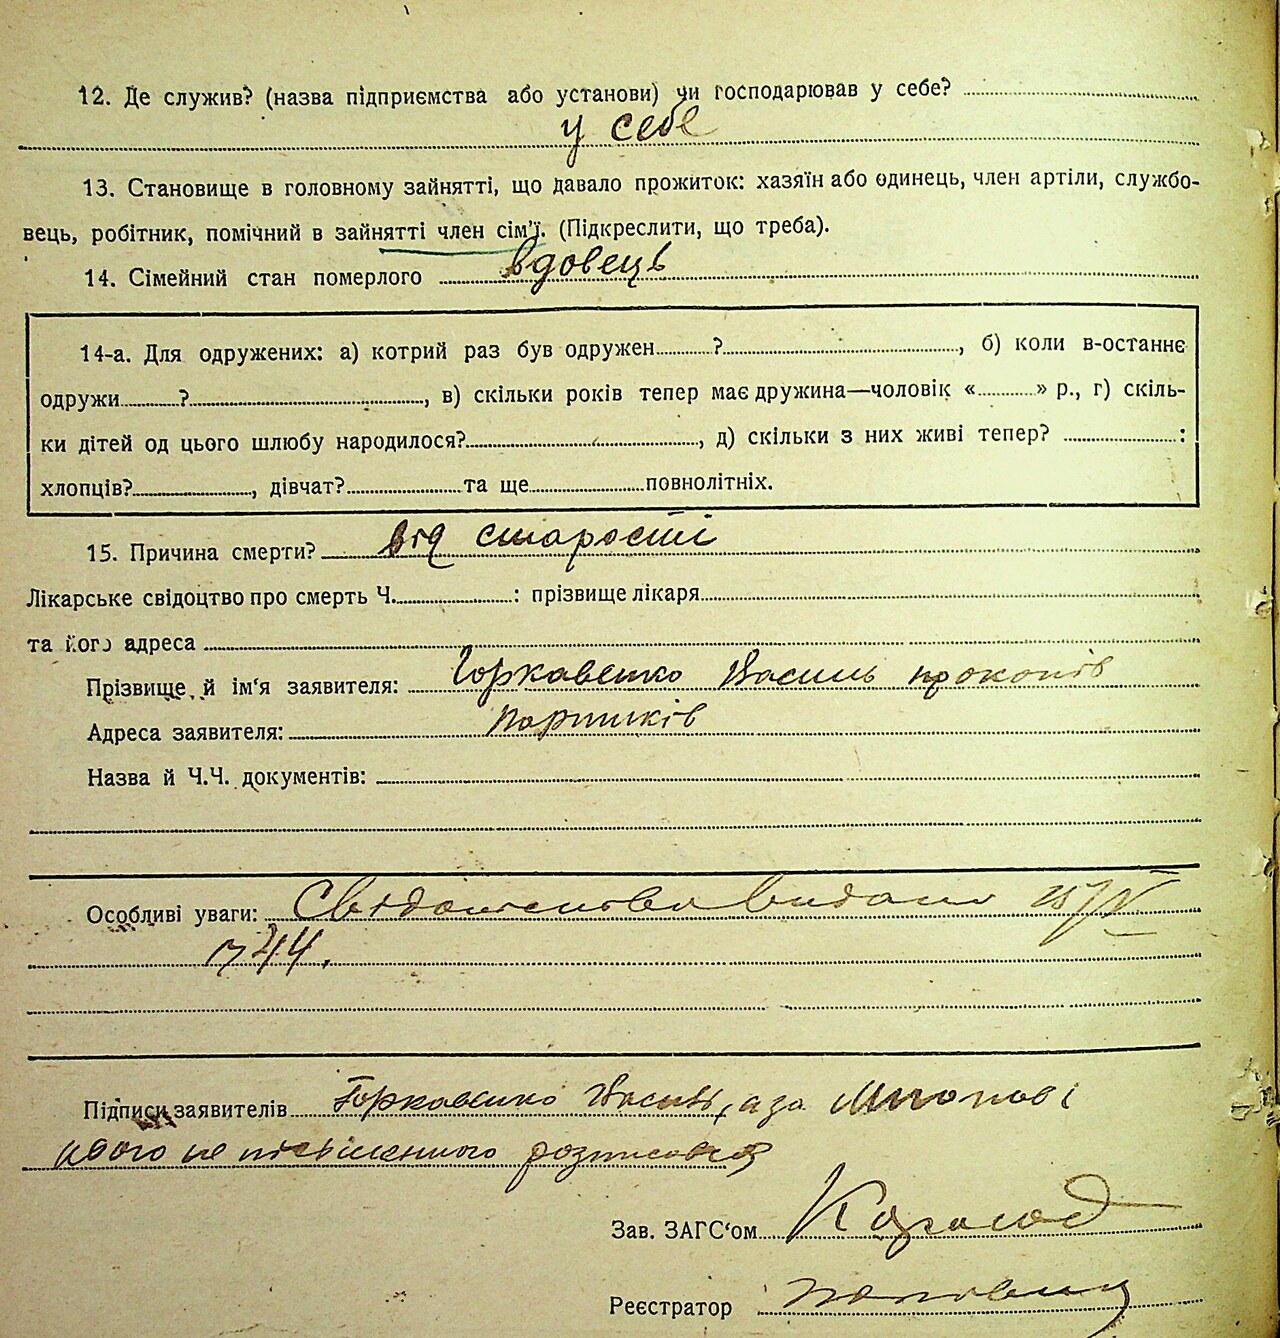 12. Де служив? (назва підприємства або установи) чи господарював у себе?
у себе
13. Становище в головному зайнятті, що давало прожиток: хазяїн або одинець, член артілі, службо-
вець, робітник, помічний в зайнятті член сім'ї. (Підкреслити, що треба).
14. Сімейний стан померлого вдовець
14-а. Для одружених: а) котрий раз був одружен ? , б) коли в-останнє
одружи ? , в) скільки років тепер має дружина—чоловік « » р., г) скіль-
ки дітей од цього шлюбу народилося? , д) скільки з них живі тепер? :
хлопців? , дівчат? та ще повнолітніх.
15. Причина смерти? від старости
Лікарське свідоцтво про смерть Ч. : прізвище лікаря
та його адреса
Прізвище й ім'я заявителя: Горкавенко Василь прокопів
Адреса заявителя:
Назва й Ч.Ч. документів:
Особливі уваги: видано
744.
Підписи заявителів Горкавенко Василь, а за
його не письменного розписався
Зав. ЗАГС'ом
Реєстратор